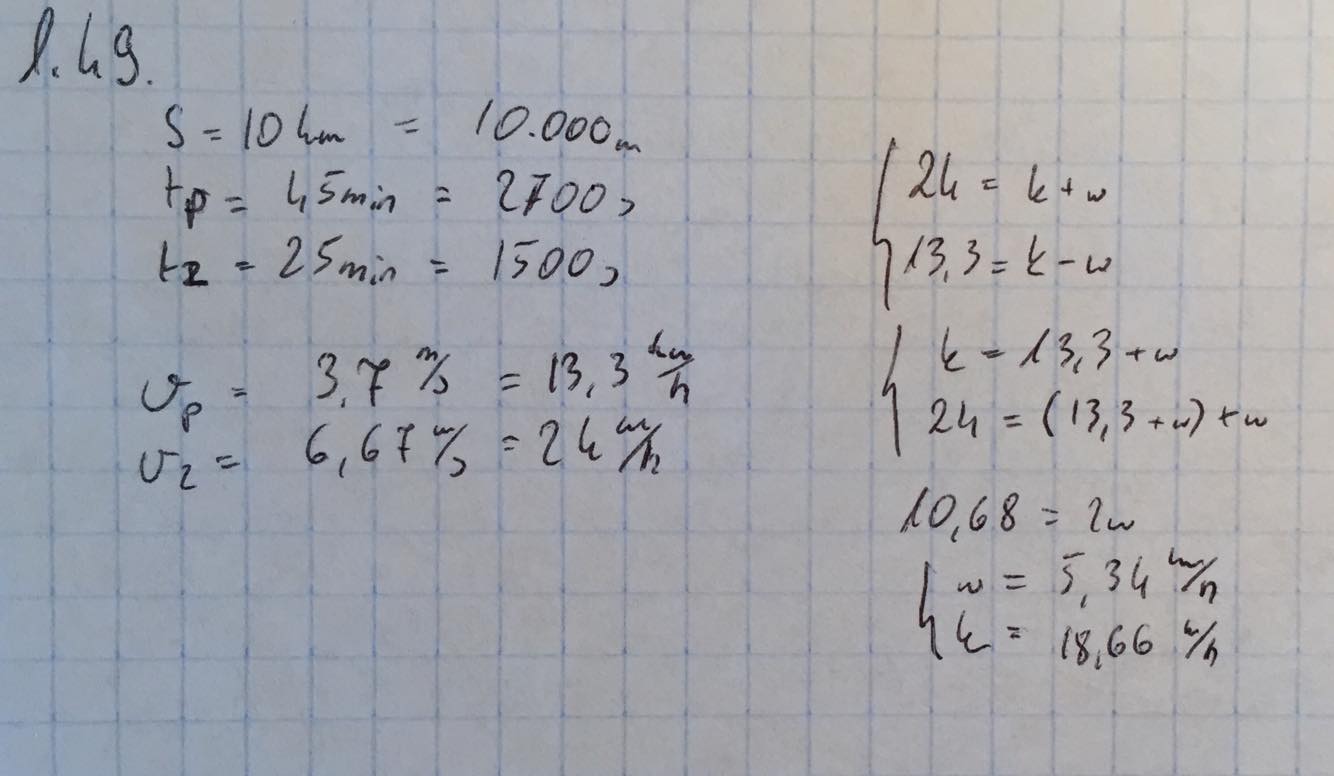 1.49.
S = 10 km = 10.000m
tp = 45min = 2700s
tz = 25min = 1500s
vp = 3,7 m/s = 13,3 km/h
vz = 6,67 m/s = 24 km/h
24 = k + w
13,3 = k - w
k = 13,3 + w
24 = (13,3 + w) + w
10,68 = 2w
w = 5,34 km/h
k = 18,66 km/h